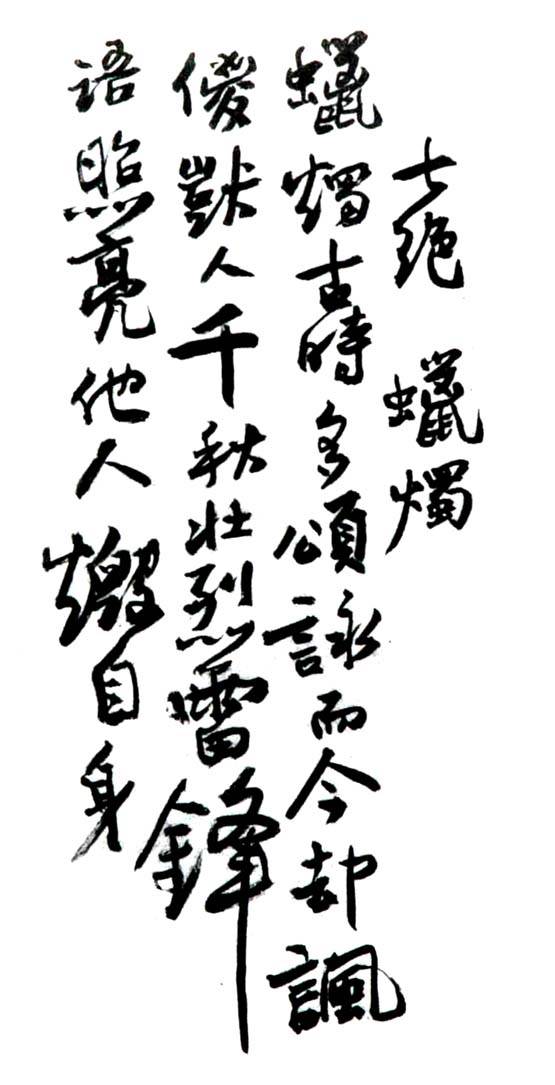 七绝 蠟燭
蠟燭古時多頌詠而今却諷
傻獃人千秋壯烈雷鋒
语照亮他人燬自身